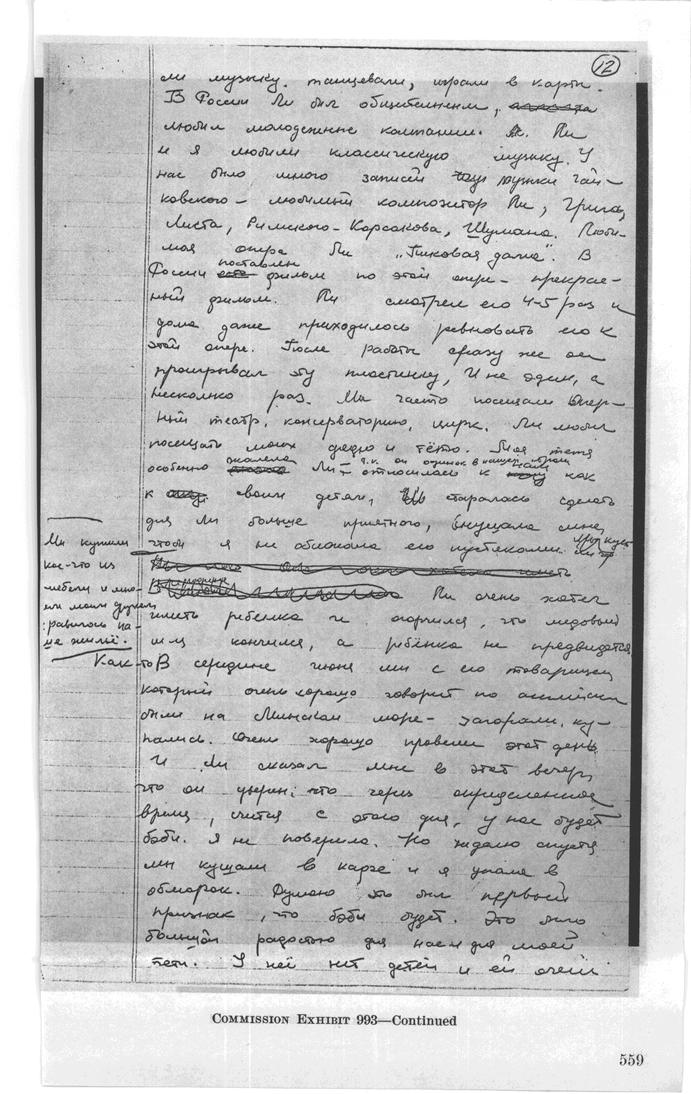 12
ли музыку. танцевали, играли в карты.
В России Ли был общественнем,
любил молодежные компании. Ли
и я любили классическую музыку. У
нас было много записей музыки Чай-
ковского – любимый композитор Ли, Грига,
Листа, Римского-Корсакова, Шумана. Люби-
мая опера Ли „Пиковая дама". В
поставлен
России есть фильм по этой опере – прекрас-
ный фильм. Ли смотрел его 4-5 раз и
дома даже приходилось ревновать его к
этой опере. После работы сразу же он
проигрывал эту пластинку, И не один, а
несколько раз. Мы часто посещали Опер-
ный театр, консерваторию, цирк. Ли любил
посещать моих дядю и тётю. Моя тетя
жалела т.к. он одинок в нашей стране
особенно Ли – относилась к как
к своим детям, старалась сделать
для Ли больше приятного, внушала мне,
чтобы я не обижала его пустяками.
Мы купили
кое-что из
мебели и мно-
гим моим друзьям
нравилось на-
ше жильё.
Ли очень хотел
иметь ребенка и огорчился, что медовый
м-ц кончился, а ребёнка не предвидется.
Как-то В середине июня мы с его товарищем
который очень хорошо говорит по английски
были на Минском море – загорали, ку-
пались. Очень хорошо провели этот день.
И Ли сказал мне в этот вечер,
что он уверен, что через определенное
время, считая с этого дня, у нас будет
бэби. Я не поверила. Но неделю спустя
мы кушали в кафе и я упала в
обморок. Думаю это был первый
признак, что бэби будет. Это было
большой радостью для нас и для моей
тети. У ней нет детей и ей очень
COMMISSION EXHIBIT 993—Continued
559